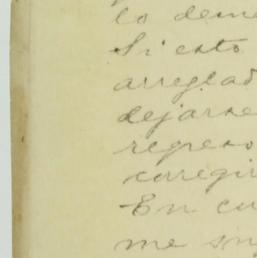 lo deme
Si esto
arreglad
dejarse
regreso
corregir
En cu
me